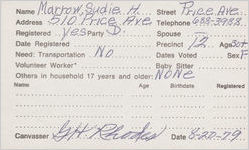 Name Marrow, Sudie H. Street Price Ave.
Address 510 Price Ave Telephone 688-3988
Registered yes D. Spouse
Date Registered Precinct 12 Age 30+
Need: Transportation No Dates Voted Sex F
Volunteer Worker* Baby Sitter
Others in household 17 years and older: NONE
Name Age Birthdates Registered
Canvasser GH Rhodes Date 8-27-79